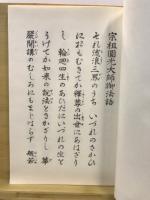 宗祖圓光大師御法語
それ流浪三界のうち いづれのさかひ
におもむきてか釋尊の出世にあはざり
し 輪廻四生のあひだにいづれの生を
うけてか如来の説法をきかざりし 華
嚴開講のむしろにもまじはらず 般若